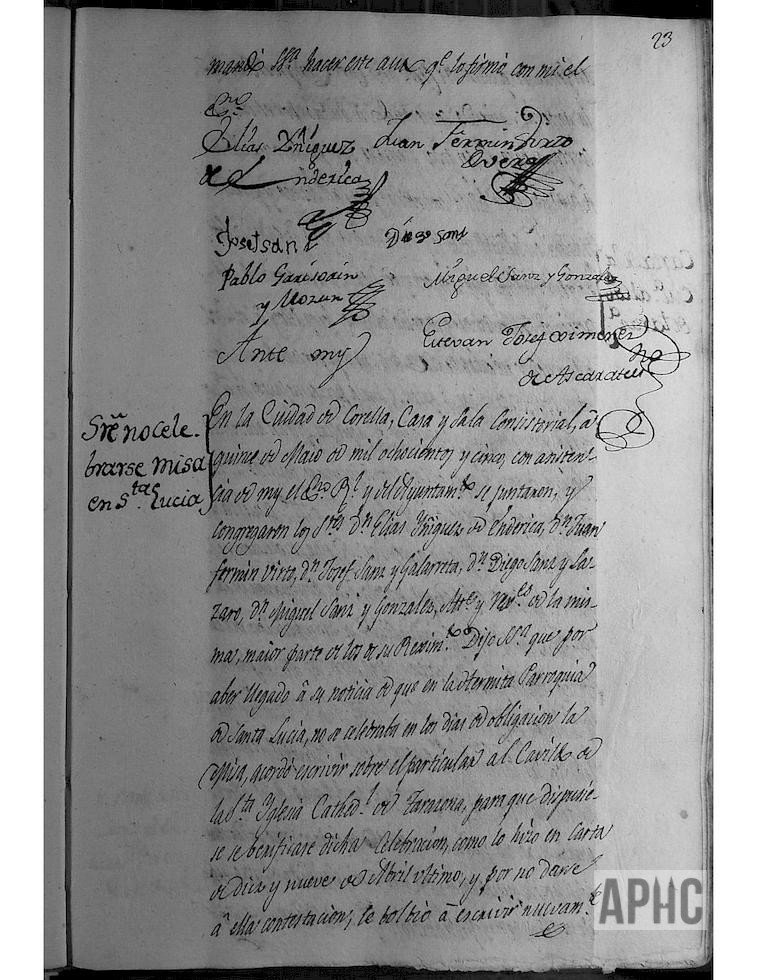 23
mandó S.Sª hacer este auto qe lo firmó con mi el
Esno
Elias Yñiguez Juan Fermin Virto
de Enderica Vera
Josef sanz Diego Sanz
Pablo Garisoain Miguel Sanz y Gonzalez
y Mozun
Ante my Estevan Josef Ximenez
de Ascarate
Sre no cele-
brarse misa
en Sta Lucia
En la Ciudad de Corella, Casa y Sala Consistorial, â
quince de Maio de mil ochocientos y cinco, con asisten-
cia de my el Esno Rl y del Ayuntamto se juntaron, y
congregaron los Sres Dn Elias Yñiguez de Enderica, Dn Juan
fermin Virto, Dn Josef Sanz y Galarreta, Dn Diego Sanz y La-
zaro, Dn Miguel Sanz y Gonzalez, Alte y Rexres de la mis-
ma, maior parte de los de su Reximto Dijo S.Sª que por
aber llegado â su noticia de que en la Hermita Parroquia
de Santa Lucia, no se celebraba en los dias de obligacion la
Misa, acordó escrivir sobre el particular al Cavildo de
la Sta Iglesia Cathedl de Tarazona, para que dispusie-
se se berificase dicha Celebracion, como lo hizo en Carta
de diez y nueve de Abril ultimo, y por no darse
â ella contestacion, le bolbió â escrivir nuevamte
APHC